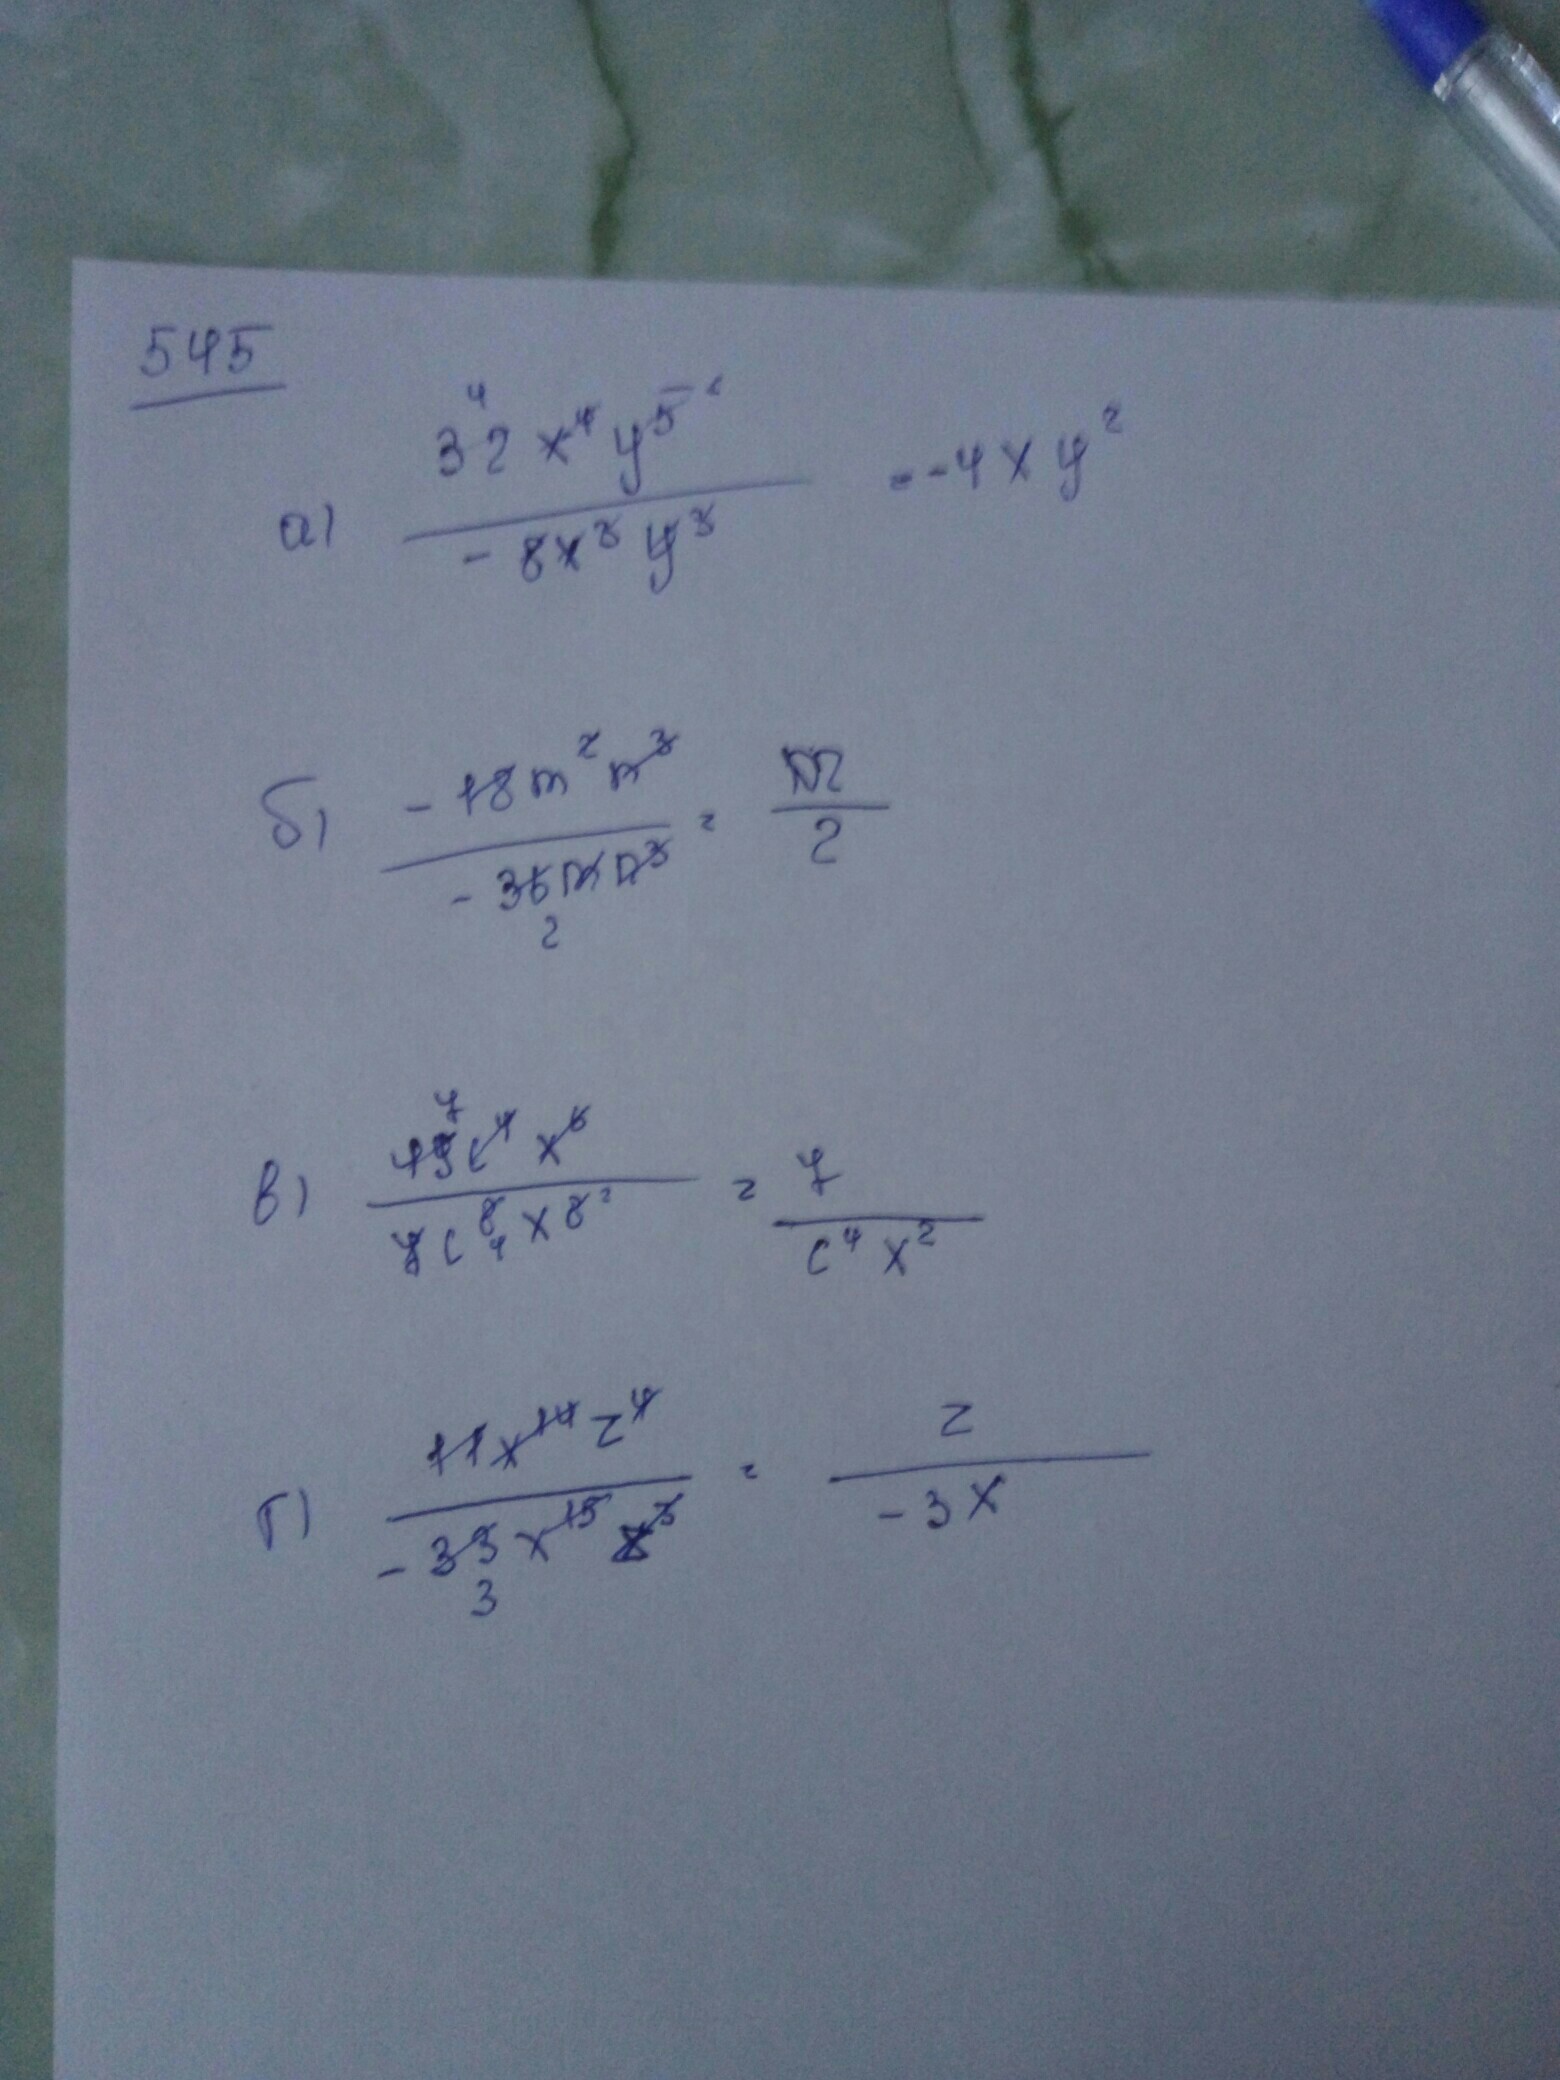 545
а) 32x⁴y⁵ / -8x³y³ = -4xy²
б) -18m²n³ / -36mn³ = m/2
в) 49c⁴x⁶ / 7c⁸x⁸ = 7 / c⁴x²
г) 11x¹⁴z⁴ / -33x¹⁵z³ = z / -3x